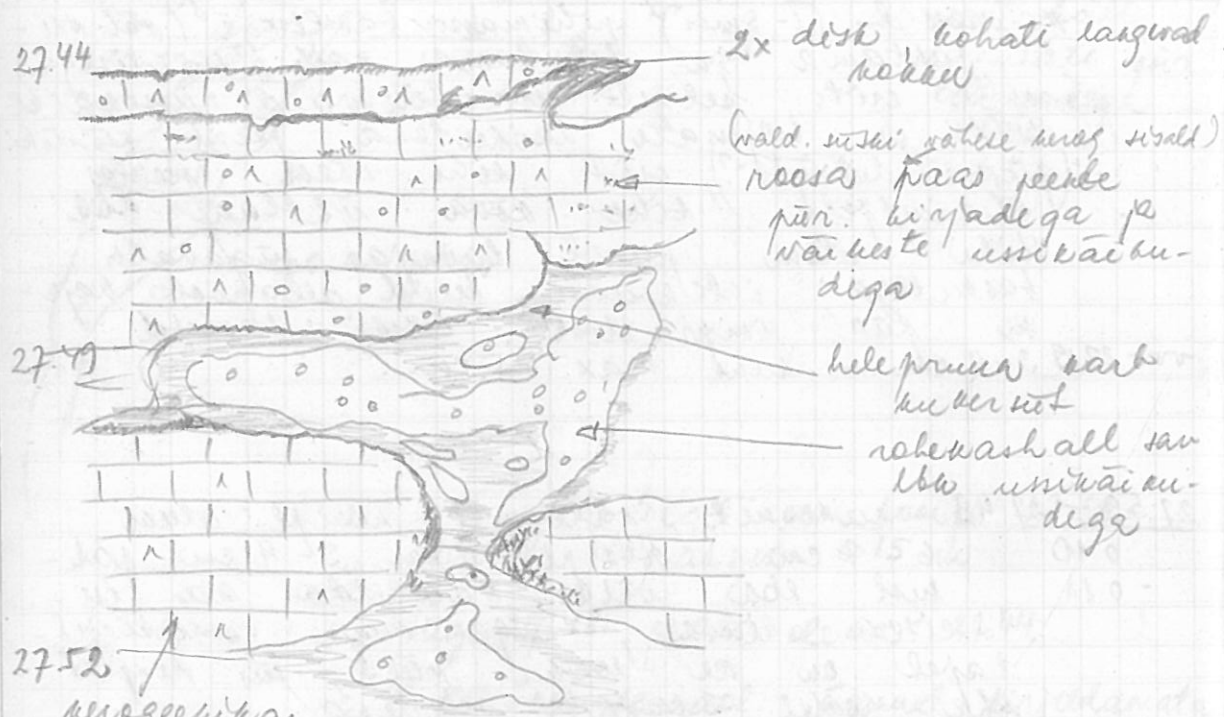 27.44
2x disk, kohati langevad
kokku
(vald. siiski vähese mrag sisald)
roosa paas peente
pür. kirjadega ja
väikeste ussikäiku-
dega
27.49
helepruun karb
kukersiit
rohekashall sav
lbk ussikäiku-
dega
27.52